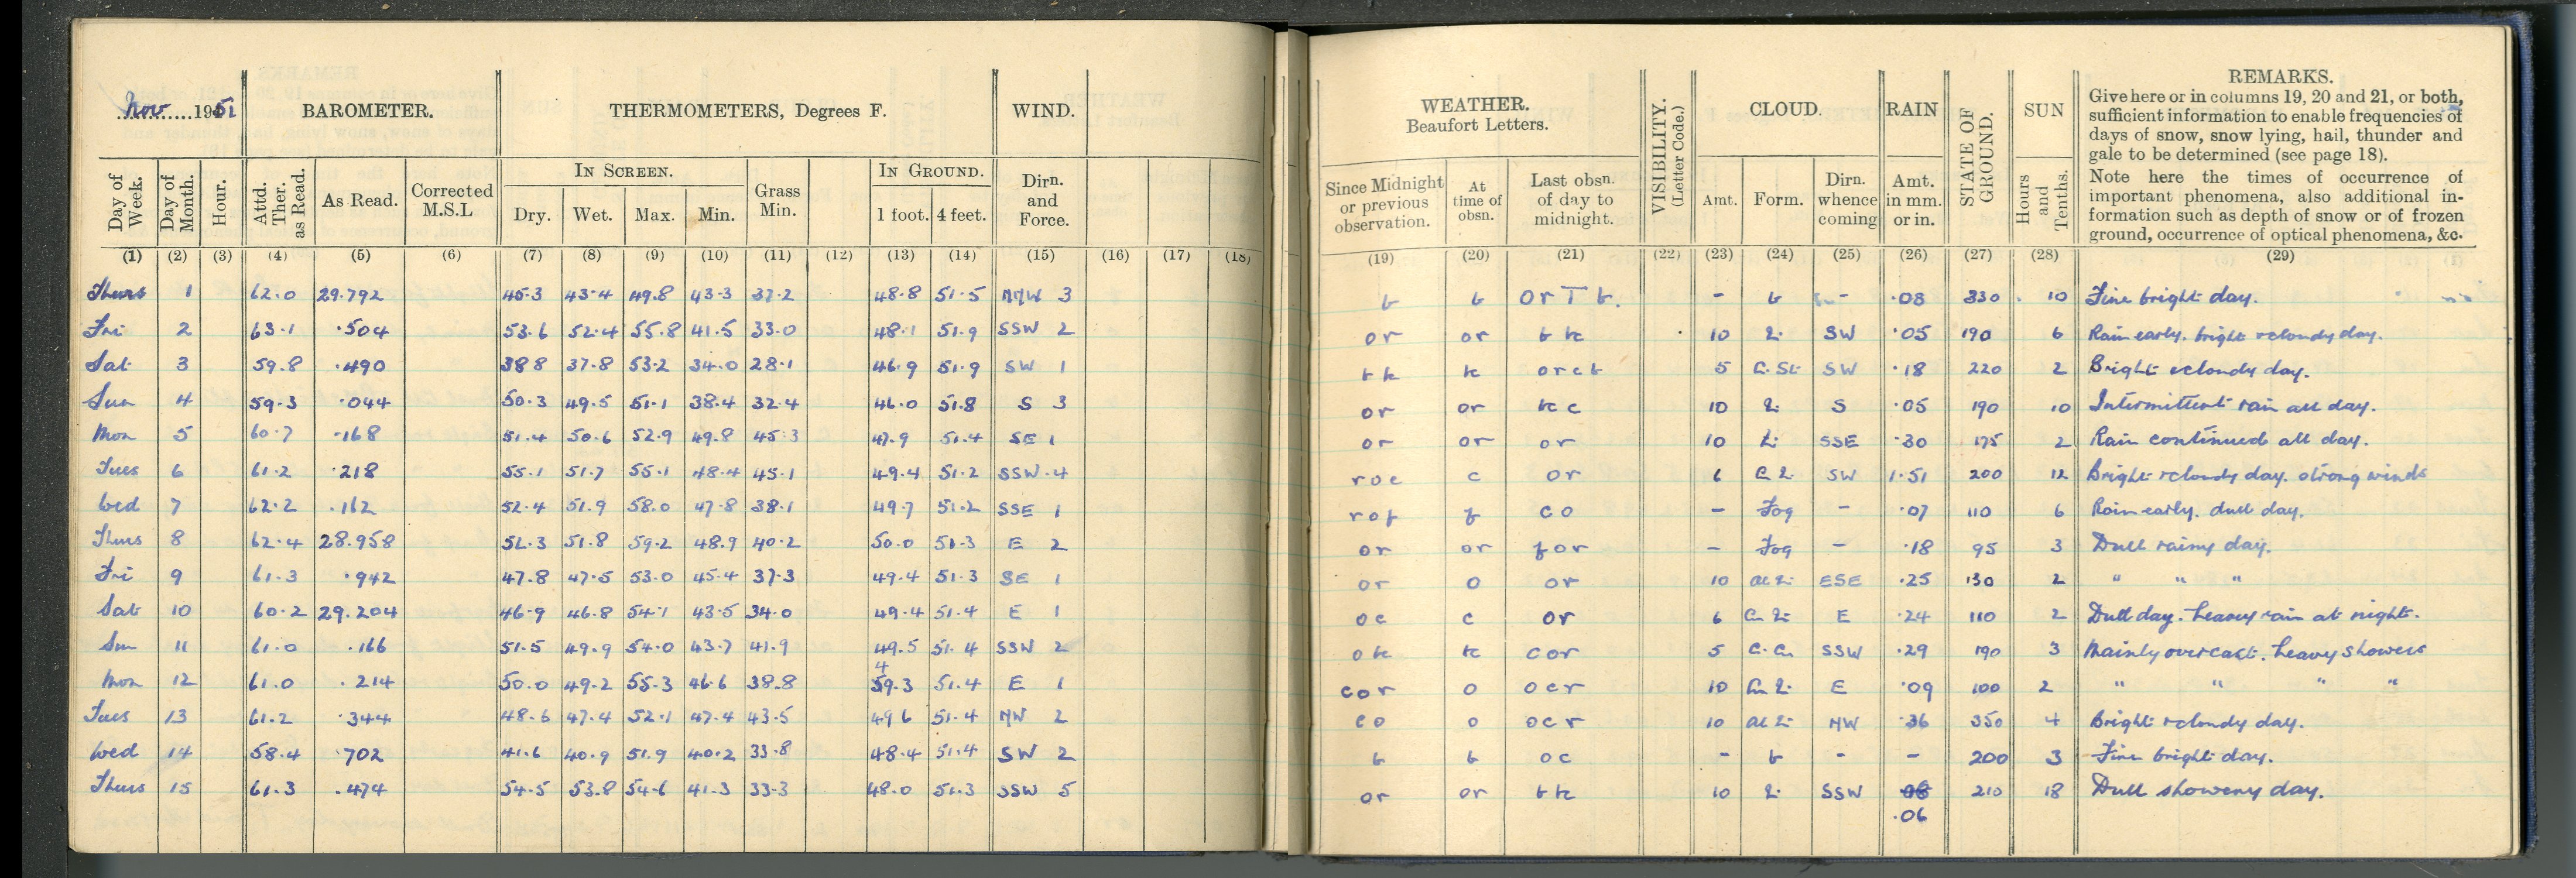 Nov 1951 BAROMETER. THERMOMETERS, Degrees F. WIND. WEATHER. Beaufort Letters. VISIBILITY. (Letter Code.) CLOUD. RAIN STATE OF GROUND. SUN REMARKS.
Give here or in columns 19, 20 and 21, or both,
sufficient information to enable frequencies of
days of snow, snow lying, hail, thunder and
gale to be determined (see page 18).
Note here the times of occurrence of
important phenomena, also additional in-
formation such as depth of snow or of frozen
ground, occurrence of optical phenomena, &c.
IN SCREEN. IN GROUND.
Day of Week. Day of Month. Hour. Attd. Ther. as Read. As Read. Corrected M.S.L Dry. Wet. Max. Min. Grass Min. 1 foot. 4 feet. Dirn. and Force. Since Midnight or previous observation. At time of obsn. Last obsn. of day to midnight. Amt. Form. Dirn. whence coming Amt. in mm. or in. Hours and Tenths.
(1) (2) (3) (4) (5) (6) (7) (8) (9) (10) (11) (12) (13) (14) (15) (16) (17) (18) (19) (20) (21) (22) (23) (24) (25) (26) (27) (28) (29)
Thurs 1 62.0 29.792 45.3 43.4 49.8 43.3 37.2 48.8 51.5 NNW 3 b b or T b. - b - .08 330 10 Fine bright day.
Fri 2 63.1 .504 53.6 52.4 55.8 41.5 33.0 48.1 51.9 SSW 2 or or 10 SW .05 190 6 Rain early. bright & cloudy day.
Sat 3 59.8 .490 38.8 37.8 53.2 34.0 28.1 46.9 51.9 SW 1 5 C. St. SW .18 220 2 Bright & cloudy day.
Sun 4 59.3 .044 50.3 49.5 51.1 38.4 32.4 46.0 51.8 S 3 or or 10 S .05 190 10 Intermittent rain all day.
Mon 5 60.7 .168 51.4 50.6 52.9 49.8 45.3 47.9 51.4 SE 1 or or or 10 SSE .30 175 2 Rain continued all day.
Tues 6 61.2 .218 55.1 51.7 55.1 48.4 45.1 49.4 51.2 SSW 4 roc c or 6 SW 1.51 200 12 Bright & cloudy day. strong winds
Wed 7 62.2 .162 52.4 51.9 58.0 47.8 38.1 49.7 51.2 SSE 1 rof f co - Fog - .07 110 6 Rain early. dull day.
Thurs 8 62.4 28.958 52.3 51.8 59.2 48.9 40.2 50.0 51.3 E 2 or or for - Fog - .18 95 3 Dull rainy day.
Fri 9 61.3 .942 47.8 47.5 53.0 45.4 37.3 49.4 51.3 SE 1 or o or 10 ESE .25 130 2 " " "
Sat 10 60.2 29.204 46.9 46.8 54.1 43.5 34.0 49.4 51.4 E 1 oc c or 6 E .24 110 2 Dull day. heavy rain at night.
Sun 11 61.0 .166 51.5 49.9 54.0 43.7 41.9 49.5 51.4 SSW 2 cor 5 C. Cu. SSW .29 190 3 Mainly overcast. heavy showers
Mon 12 61.0 .214 50.0 49.2 55.3 46.6 38.8 49.3 51.4 E 1 cor o ocr 10 E .09 100 2 " " " "
Tues 13 61.2 .344 48.6 47.4 52.1 47.4 43.5 49.6 51.4 NW 2 co o ocr 10 NW .36 350 4 Bright & cloudy day.
Wed 14 58.4 .702 41.6 40.9 51.9 40.2 33.8 48.4 51.4 SW 2 b b oc - b - - 200 3 Fine bright day.
Thurs 15 61.3 .474 54.5 53.8 54.6 41.3 33.3 48.0 51.3 SSW 5 or or 10 SSW 08 210 18 Dull showery day.
.06